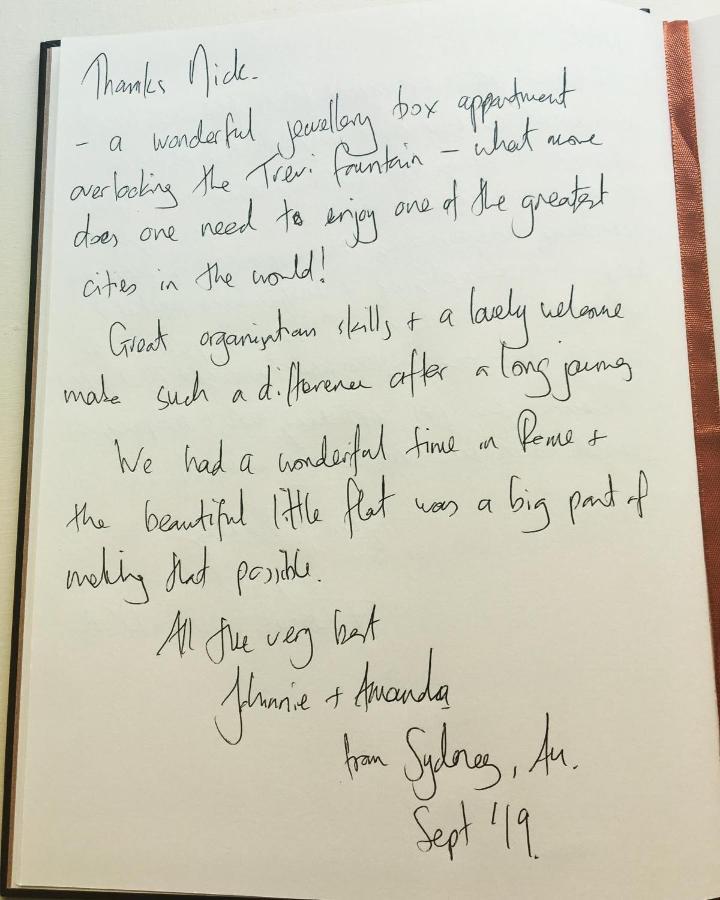 Thanks Nick.
- a wonderful jewellery box appartment
overlooking the Trevi fountain - what more
does one need to enjoy one of the greatest
cities in the world!
Great organisation skills + a lovely welcome
make such a difference after a long journey
We had a wonderful time in Rome +
the beautiful little flat was a big part of
making that possible.
All the very best
Johnnie + Amanda
from Sydney, Au.
Sept '19.